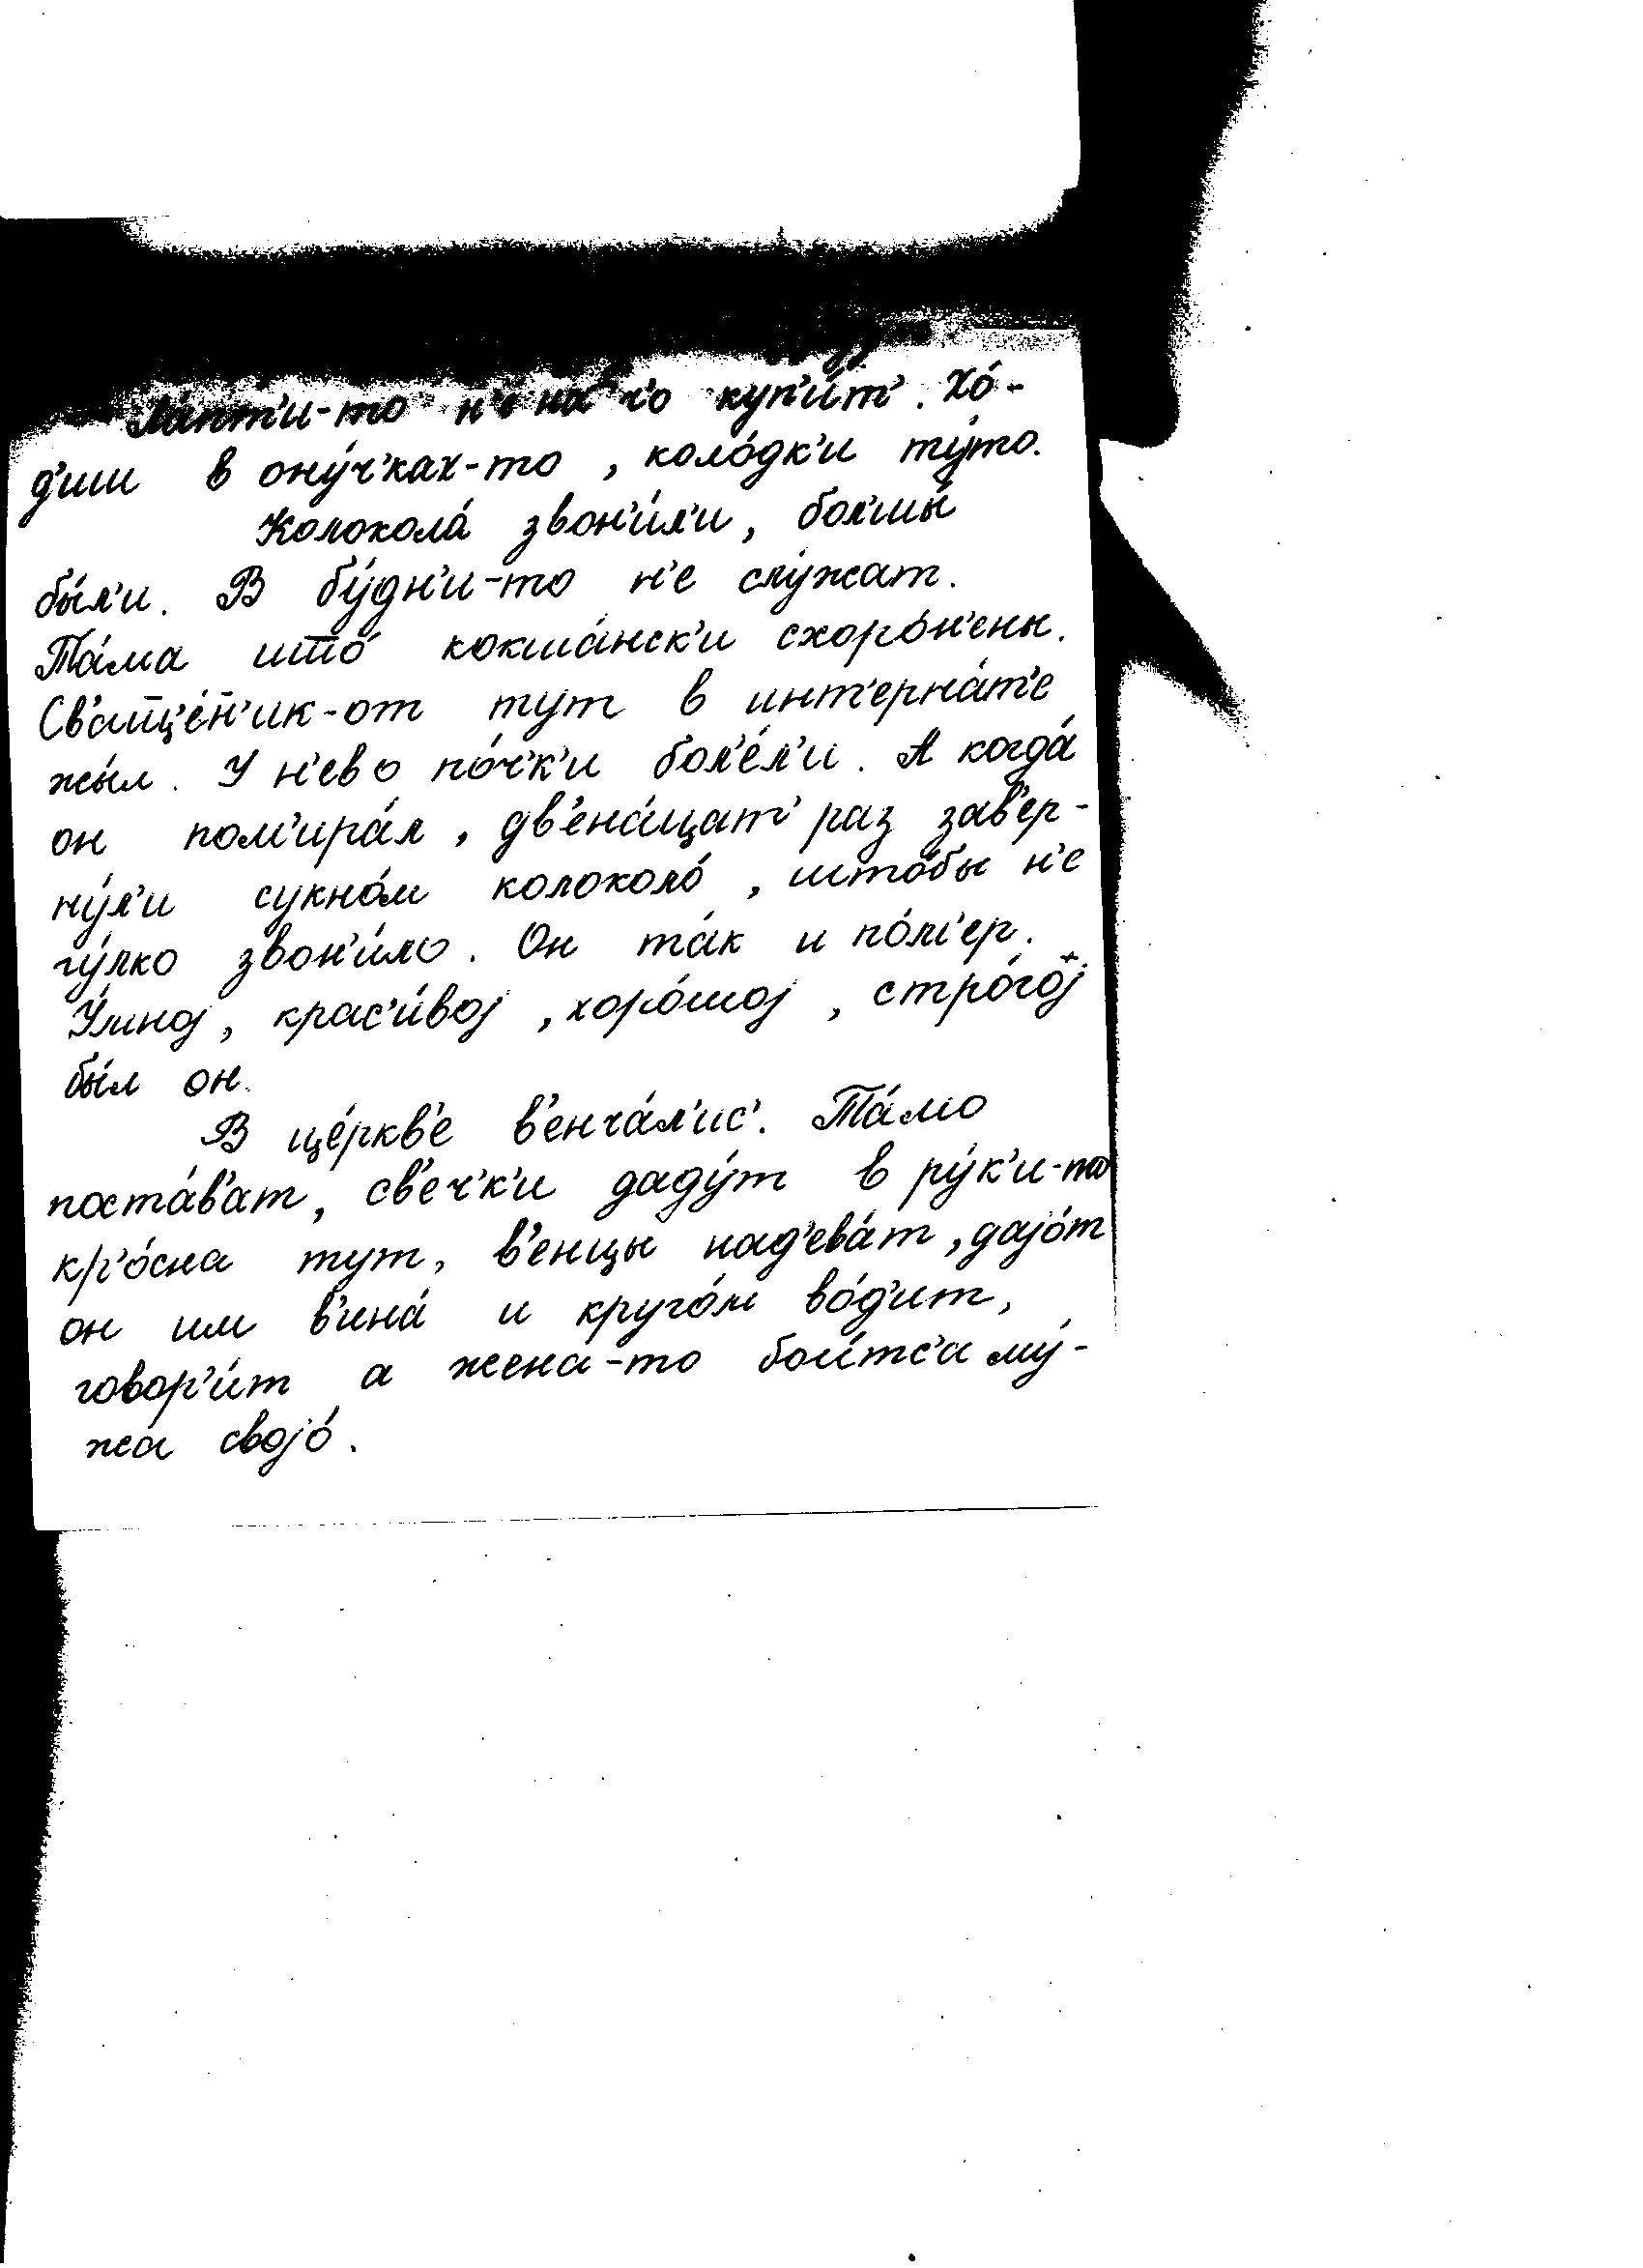 Ла́пт'и-то н'е́ на чо куп'и́т'. Хо́-
д'иш в ону́ч'ках-то, коло́дк'и ту́то.
Колокола́ звон'и́л'и, бол'шы́
бы́л'и. В бу́дн'и-то н'е слу́жат.
Та́ма што́ кокша́нск'и схоро́н'ены.
Св'ащ'е́н'ик-от тут в инт'ерна́т'е
жы́л. У н'ево по́ч'к'и бол'е́л'и. А когда́
он пом'ира́л, дв'ена́цат' раз зав'ер-
ну́л'и сукно́м колоколо́, што́бы н'е
гу́лко звон'и́ло. Он та́к и по́м'ер.
У́мноj, крас'и́воj, хоро́шоj, стро́гоj
бы́л он.
В це́ркв'е в'енча́л'ис'. Та́мо
поста́в'ат, св'еч'к'и даду́т в ру́к'и-то
кр'о́сна тут, в'енцы над'ева́т, даjо́т
он им в'ина́ и круго́м во́д'ит,
говор'и́т а жена́-то бои́тс'а му́-
жа своjо́.